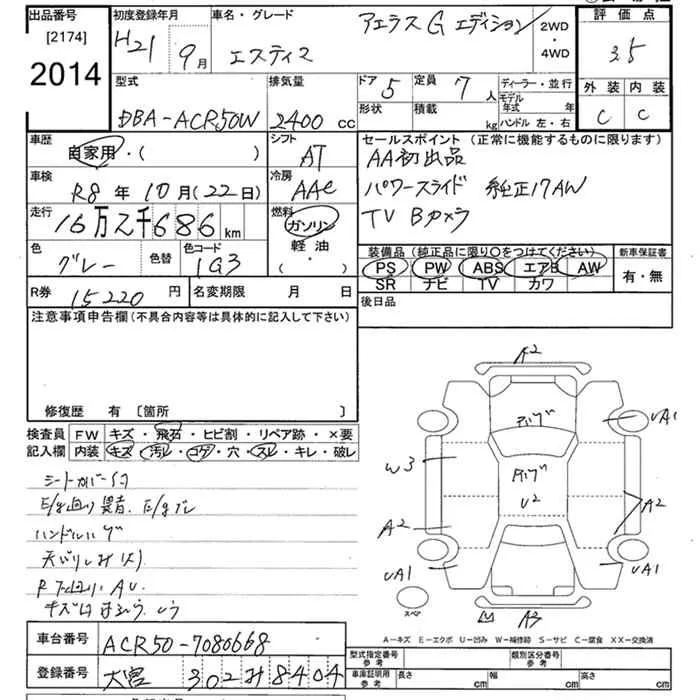 出品番号
[2174]
2014
初度登録年月
H21 9月
車名・グレード
エスティマ アエラス G エディション
2WD・4WD
評価点
3.5
外装 内装
C C
型式
DBA-ACR50W
排気量
2400 cc
ドア 5
定員 7 人
形状
積載 kg
ディーラー・並行
モデル年式 年
ハンドル 左・右
車歴
自家用・( )
シフト
AT
車検
R8年10月(22日)
冷房
AAC
走行
16万2千686km
燃料
ガソリン
軽油
・( )
色
グレー
色替
色コード
1G3
R券 15220円
名変期限 月 日
セールスポイント (正常に機能するものに限ります)
AA初出品
パワースライド 純正17AW
TV Bカメラ
装備品(純正品に限り〇をつけてください)
PS PW ABS エアB AW
SR ナビ TV カワ
新車保証書
有・無
後日品
注意事項申告欄(不具合内容等は具体的に記入して下さい)
修復歴 有 [箇所 ]
検査員
記入欄
FW キズ・飛石・ヒビ割・リペア跡・×要
内装 キズ・汚レ・コゲ・穴・スレ・キレ・破レ
シートカバー付
E/g回り異音. E/gブレ
ハンドルハゲ
A2
UA1
W3
U2
A2
A2
UA1
UA1
A3
スペア
A-キズ E-エクボ U-凹み W-補修跡 S-サビ C-腐食 XX-交換済
車台番号 ACR50-7080668
登録番号 大宮 302 み 8404
型式指定番号
参考
類別区分番号
参考
車庫証明用
参考
長さ cm 幅 cm 高さ cm